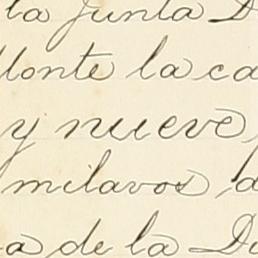 la Junta D
Monte la ca
y nueve,
milavos, d
a de la Do